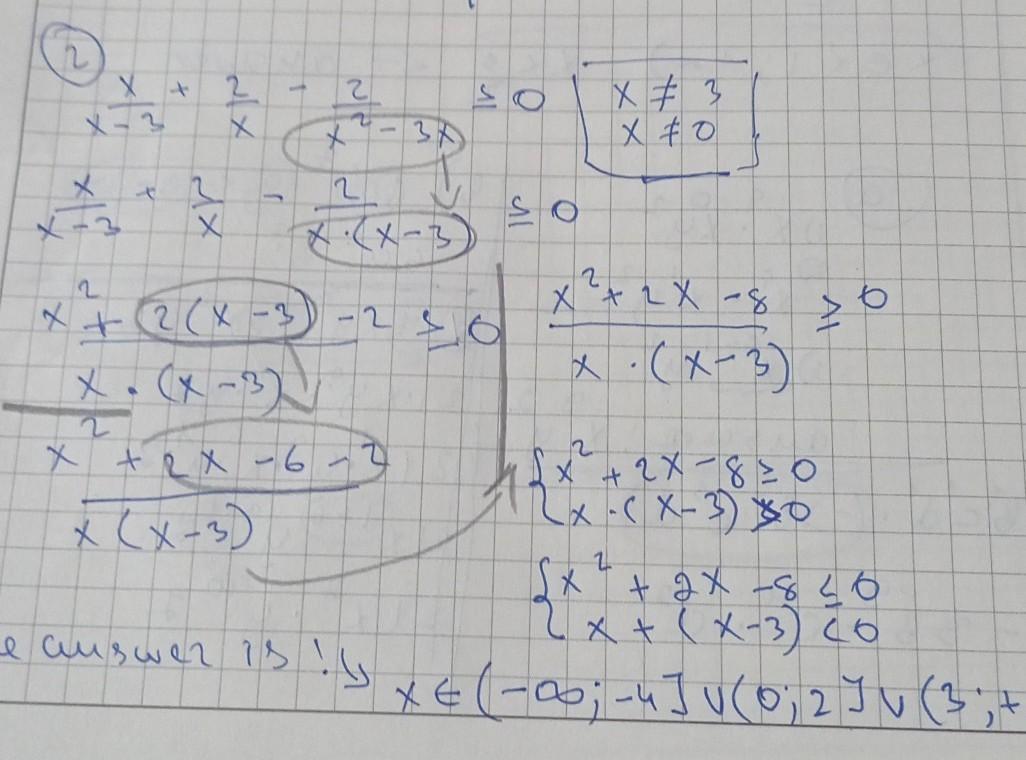 2
x/(x-3) + 2/x - 2/(x² - 3x) ≤ 0
x ≠ 3
x ≠ 0
x/(x-3) + 2/x - 2/(x·(x-3)) ≤ 0
(x² + 2(x-3) - 2)/(x·(x-3)) ≤ 0
(x² + 2x - 6 - 2)/(x(x-3))
(x² + 2x - 8)/(x·(x-3)) ≥ 0
{x² + 2x - 8 ≥ 0
x·(x-3) > 0
{x² + 2x - 8 ≤ 0
x + (x-3) < 0
e answer is !↘
x ∈ (-∞; -4] ∪ (0; 2] ∪ (3; +